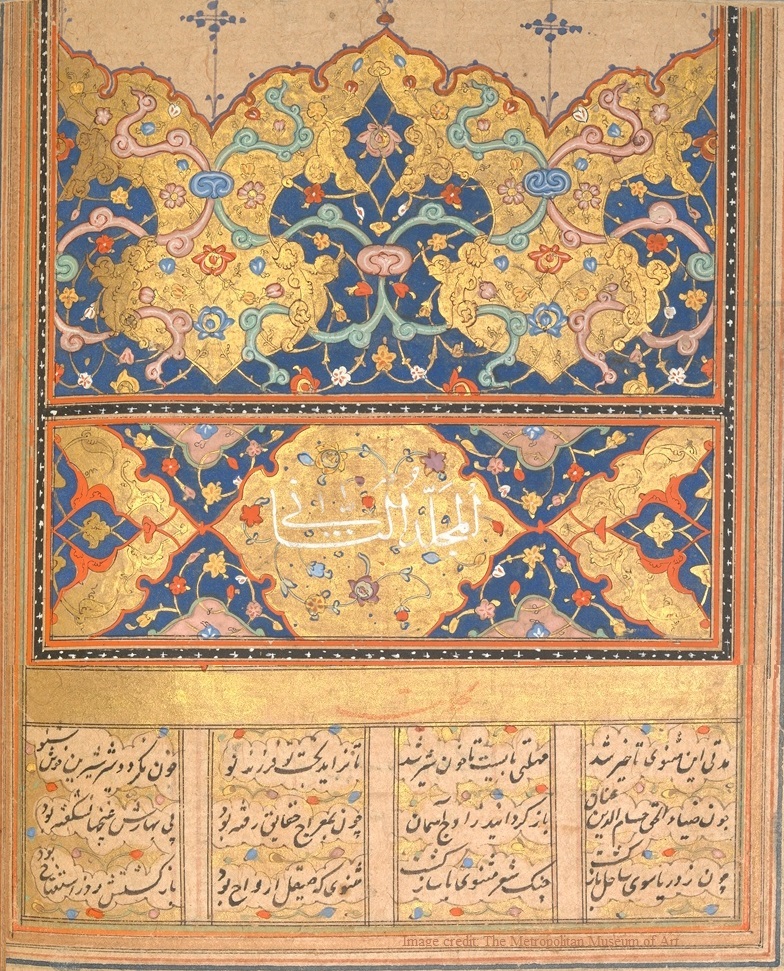 المجلّد الثانی
مدتی این مثنوی تاخیر شد مهلتی بایست تا خون شیر شد تا نزاید بخت تو فرزند نو خون نگردد شیر شیرین خوش شنو
چون ضیاء الحق حسام الدین عنان باز گردانید ز اوج آسمان چون بمعراج حقایق رفته بود بی بهارش غنچها نشکفته بود
چون ز دریا سوی ساحل بازگشت چنگ شعر مثنوی با ساز گشت مثنوی که صیقل ارواح بود باز گشتش روز استفتاح بود
Image credit: The Metropolitan Museum of Art